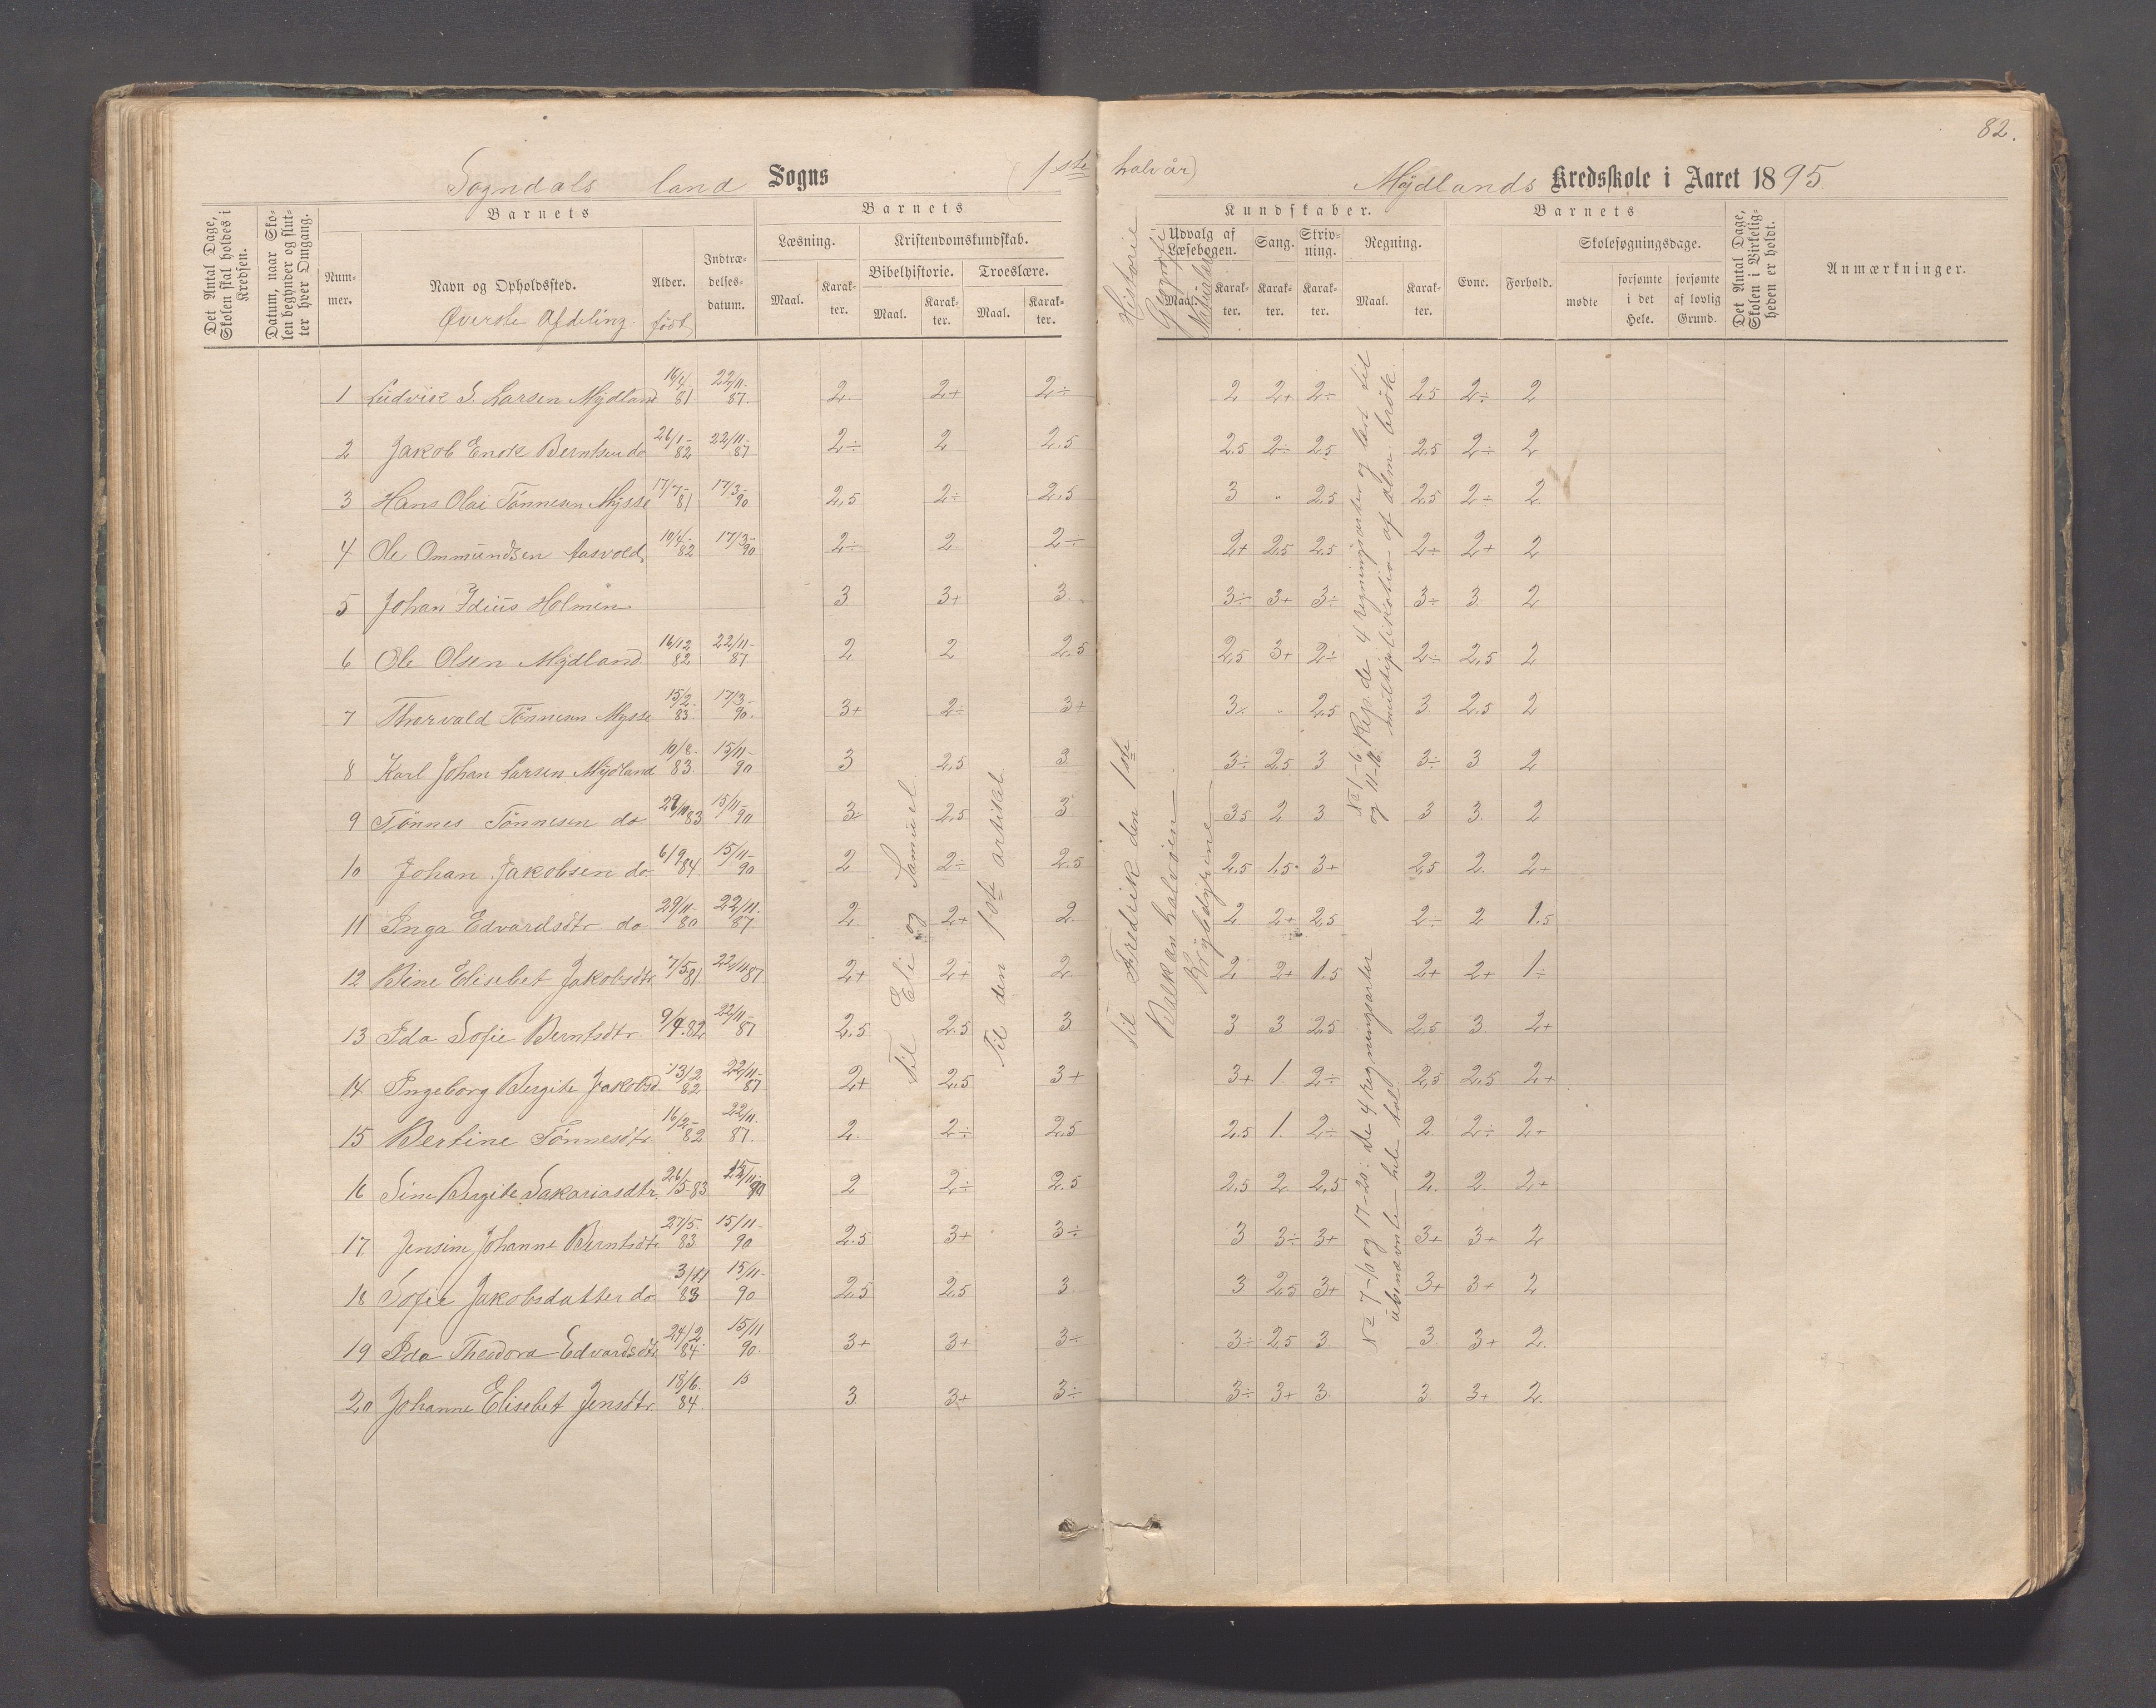 82.
Sogndals land Sogns (1ste halvår) Mydlands Kredsskole i Aaret 1895
Det Antal Dage, Skolen skal holdes i Kredsen.
Datum, naar Skolen begynder og slutter hver Omgang.
Barnets
Nummer.
Navn og Opholdssted.
Øverste Afdeling.
Alder.
født
Indtrædelsesdatum.
Barnets
Læsning.
Maal.
Karakter.
Kristendomskundskab.
Bibelhistorie.
Maal.
Karakter.
Troeslære.
Maal.
Karakter.
Historie
Geografi
Kundskaber.
Udvalg af Læsebogen.
Maal.
Karakter.
Sang.
Karakter.
Skrivning.
Karakter.
Regning.
Maal.
Karakter.
Barnets
Evne.
Forhold.
Skolesøgningsdage.
mødte
forsømte i det Hele.
forsømte af lovlig Grund.
Det Antal Dage, Skolen i Virkeligheden er holdt.
Anmærkninger.
1 Ludvik S. Larsen Mydland 16/4 81 22/11- 87. 2 2+ 2÷ 2 2+ 2÷ 2,5 2÷ 2
2 Jakob Enok Berntsen do 26/1- 82 22/11- 87 2÷ 2 2.5 2.5 2÷ 2.5 2.5 2÷ 2
3 Hans Olai Tönnesen Mysse 17/7- 81 17/3- 90 2,5 2÷ 2.5 3 " 2.5 2.5 2÷ 2
4 Ole Ommundsen Aasvold 10/4- 82 17/3- 90 2÷ 2 2÷ 2+ 2.5 2.5 2÷ 2+ 2
5 Johan Idius Holmen 3 3+ 3 3÷ 3+ 3÷ 3÷ 3 2
6 Ole Olsen Mydland 16/12 82 22/11- 87 2 2 2.5 2,5 3+ 2÷ 2÷ 2,5 2
7 Thorvald Tönnesen Mysse 15/2 83 17/3- 90. 3+ 2÷ 3+ 3÷ " 2,5 3 2,5 2
8 Karl Johan Larsen Mydland 10/8- 83. 15/11- 90 3 2,5 3 3÷ 2,5 3 3÷ 3 2
9 Tönnes Tönnesen do 29/11 83 15/11- 90 3 2,5 3 3,5 2 3 3 3 2
10 Johan Jakobsen do 6/9 84 15/11- 90 2 2÷ 2.5 2,5 1,5 3+ 2,5 2 2+
11 Inga Edvardsdtr do 29/11- 80 22/11. 87 2 2+ 2 2 2+ 2,5 2÷ 2 1.5
12 Bine Elisebet Jakobsdtr. 7/5 81 22/11 87 2+ 2+ 2 2 2+ 1.5 2+ 2+ 1÷
13 Ida Sofie Berntsdtr. 9/4.82 22/11- 87 2,5 2.5 3 3 3 2,5 2,5 3 2+
14 Ingeborg Bergite Jakobsd. 13/2 82 22/11- 87 2+ 2,5 3+ 3+ 1 2÷ 2,5 2,5 2+
15 Bertine Tönnesdtr 16/2- 82 22/11. 87. 2 2÷ 2,5 2.5 1. 2÷ 2 2÷ 2+
16 Sine Bergite Sakariasdtr. 26/5-83 15/11- 90 2 2÷ 2.5 2,5 2 2,5 2. 2 2+
17 Jensine Johanne Berntsdtr 27/5. 83 15/11- 90 2.5 3+ 3÷ 3 3÷ 3+ 3+ 3+ 2
18 Sofie Jakobsdatter do 3/11 83 15/11- 90 2,5 2,5 3 3 2,5 3+ 3+ 3+ 2
19 Ida Theodora Edvardsdtr 24/2 84 15/11 90. 3+ 3+ 3+ 3÷ 2,5 3. 3 3+ 2.
20 Johanne Elisebet Jensdtr. 18/6. 84. 15 3. 3+ 3÷ 3÷ 3+ 3. 3 3+ 2.
Til Eli og Samuel
Til den 1ste artikel
Til Fredrik den 1ste
Balkanhalvöen
Krybdyrene
No 1-6 Rep. de 4 regningsarter og lært til
og 11-16. multiplikation af alm. brök.
No 7-10 og 17-20: de 4 regningsarter
ubenævnte hele tal